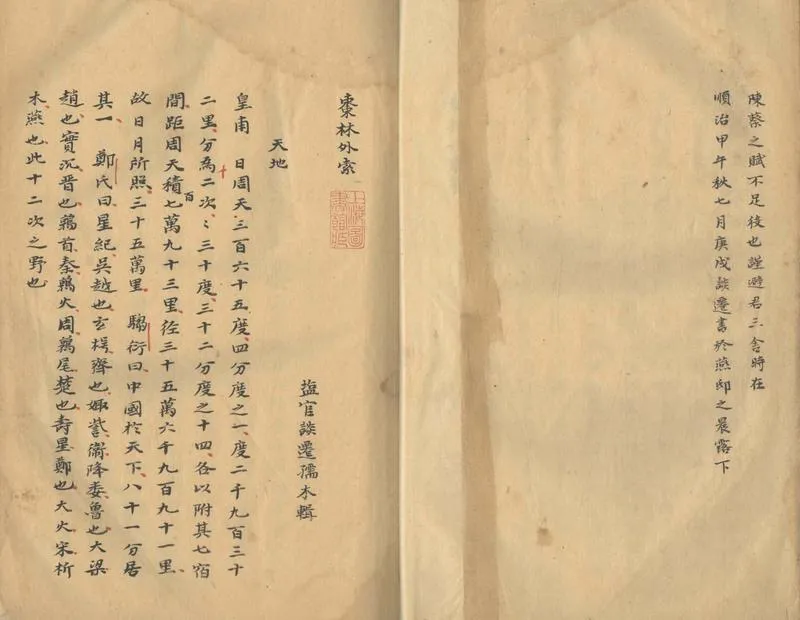 陳蔡之賦不足役也謹避君三舍時在
順治甲午秋七月庚戌談遷書於燕邸之晨露下
棗林外索
上海圖書館藏
塩官談遷孺木輯
天地
皇甫　日周天三百六十五度四分度之一度二千九百三十
二里分為十二次〻三十度三十二分度之十四各以附其七宿
間距周天積百七萬九十三里徑三十五萬六千九百九十一里
故日月所照三十五萬里　騶衍曰中國於天下八十一分居
其一　鄭氏曰星紀吳越也玄枵齊也娵訾衞降婁魯也大梁
趙也實沉晋也鶉首秦鶉火周鶉尾楚也壽星鄭也大火宋析
木燕也此十二次之野也